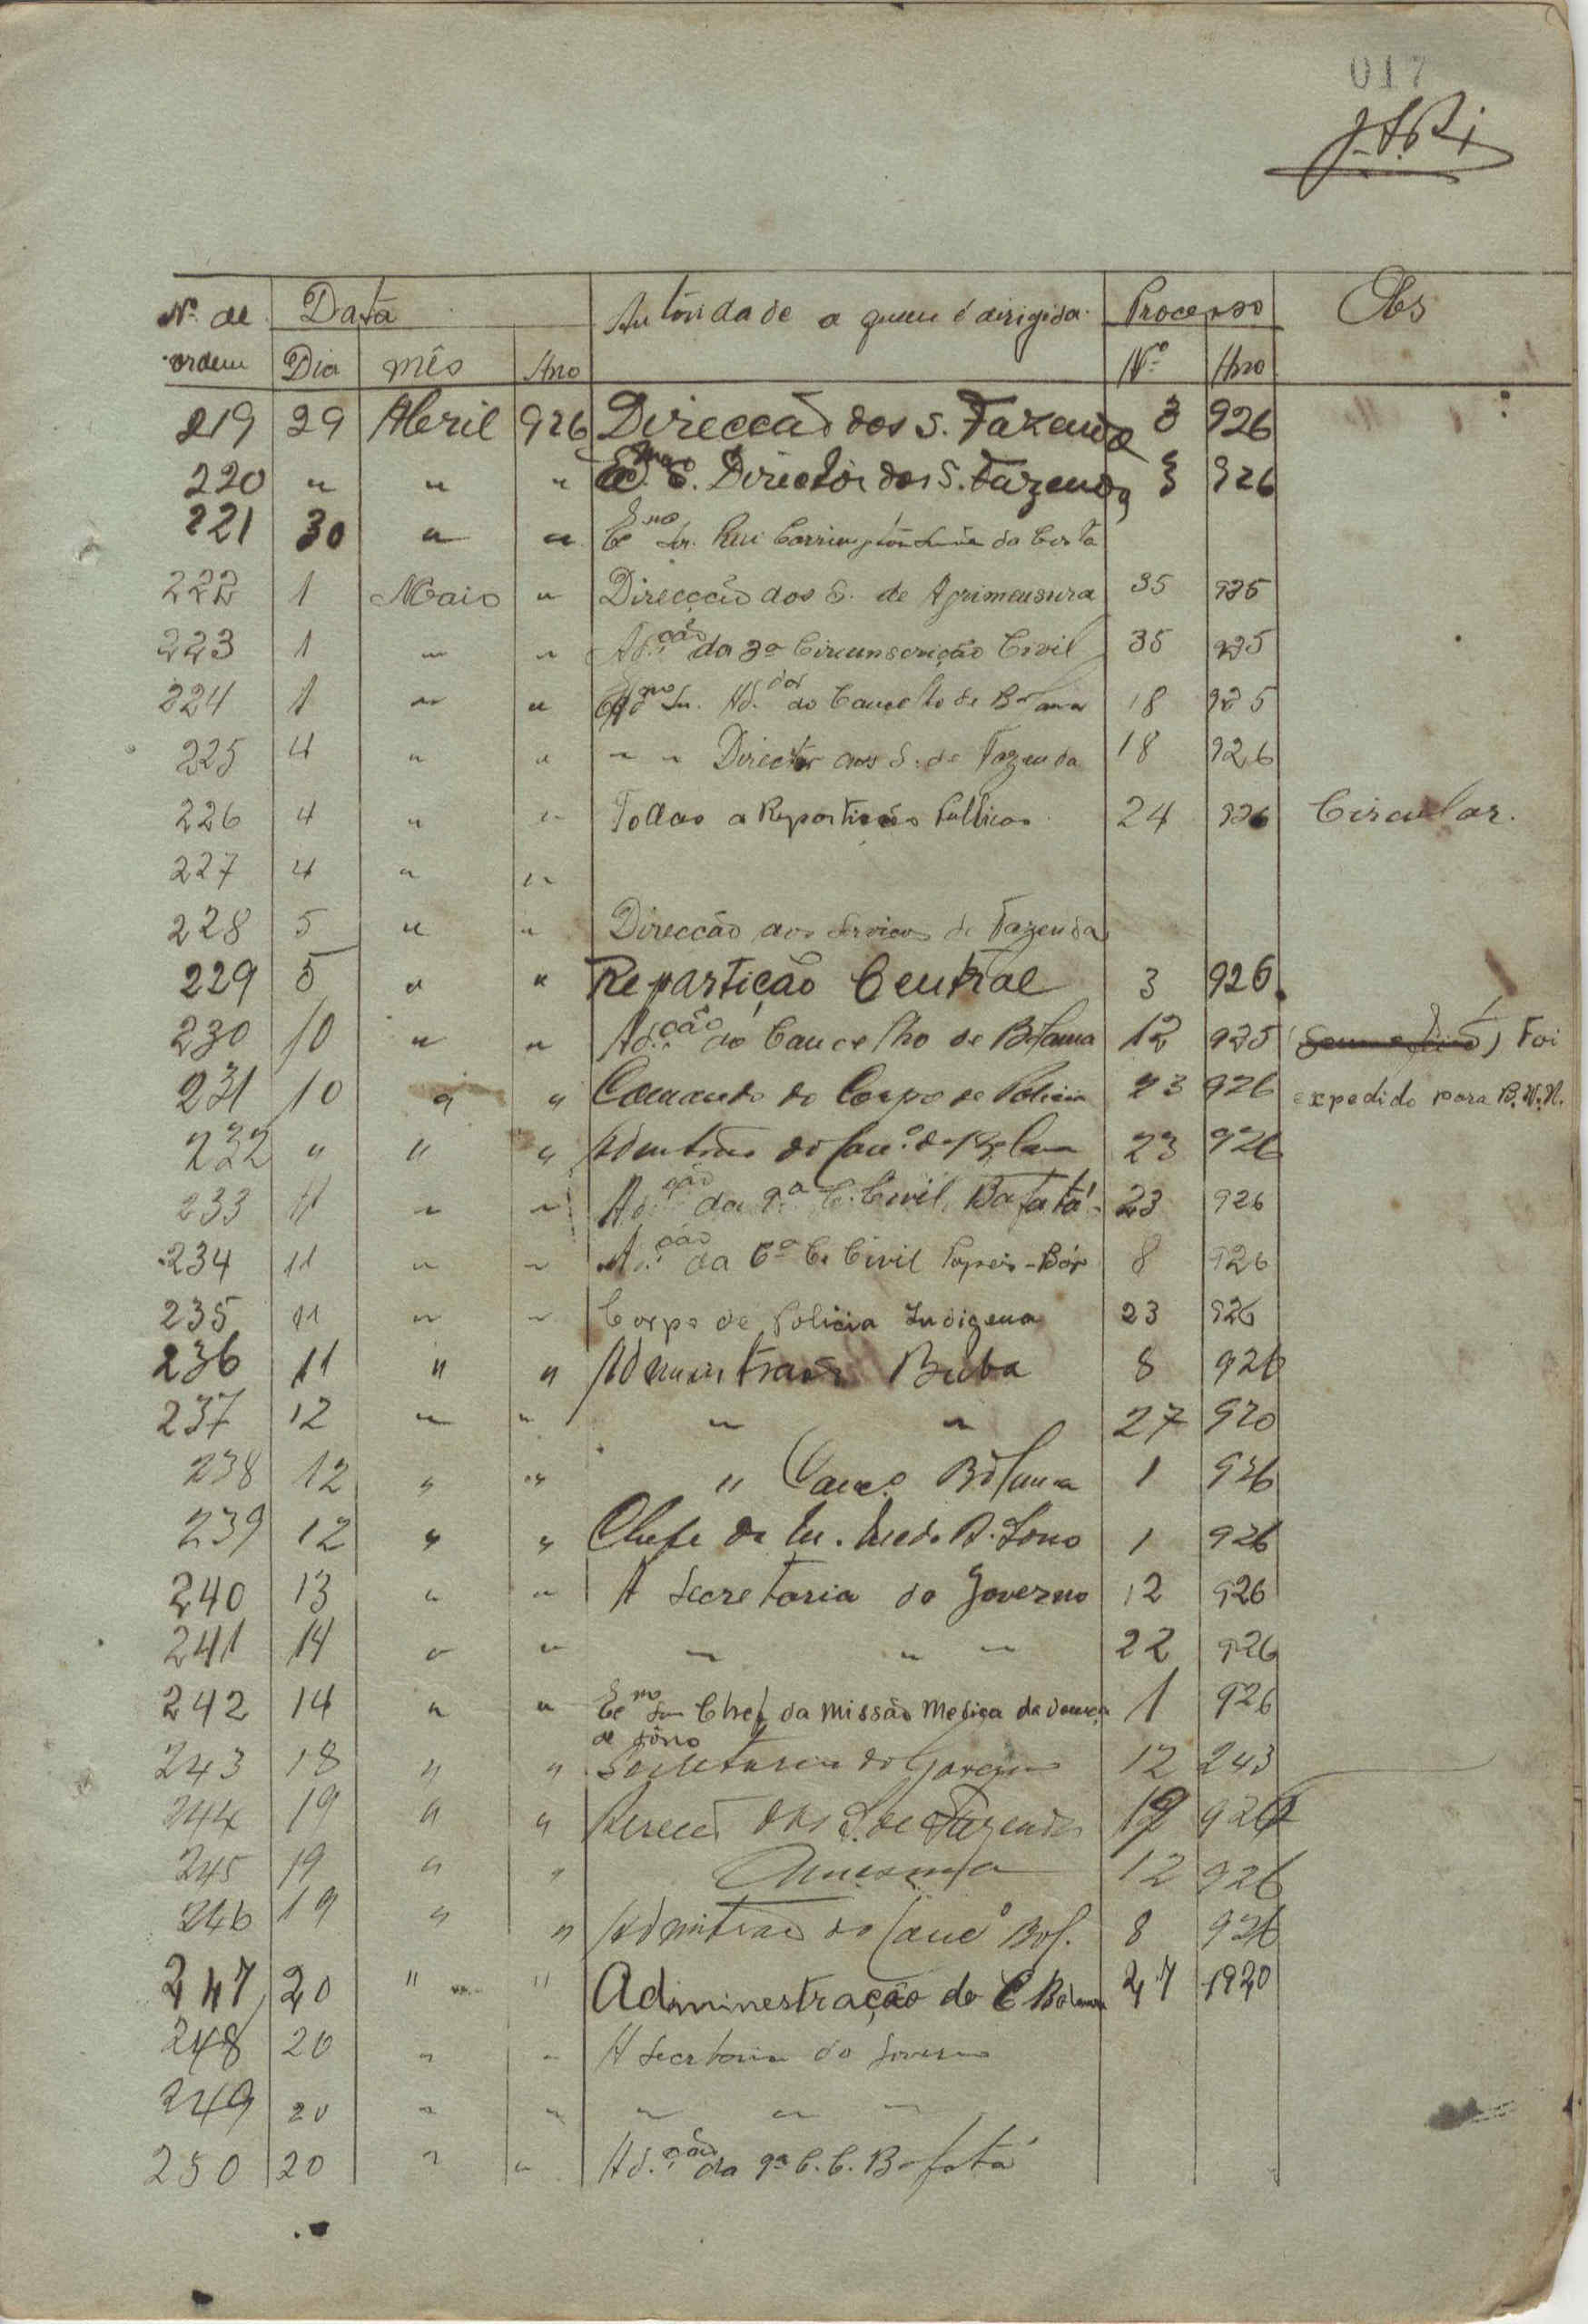 017
Nº de Data Autoridade a quem é dirigida Processo Obs
ordem Dia mês Ano Nº Ano
219 29 Abril 926 Direccão dos S. Fazenda 3 926
220 " " " Exmo S. Director dos S. Fazenda 3 926
221 30 " " Exmo Sr. Rui da Costa
222 1 Maio " Direcção dos S. de Agrimensura 35 925
223 1 " " Ad.ção da 3ª Circunscrição Civil 35 925
224 1 " " Exmo Sr. Ad.dor do Concelho de Bolama 18 925
225 4 " " " " Director dos S. de Fazenda 18 926
226 4 " " Todas a Repartições Publicas 24 926 Circular.
227 4 " "
228 5 " " Direccão dos Serviços de Fazenda
229 5 " " Repartição Central 3 926
230 10 " " Ad.ção do Concelho de Bolama 12 925 Foi
231 10 " " Comando do Corpo de Policia 23 926 expedido para B.N.U.
232 " " " do Conc.º de Bolama 23 926
233 11 " " Ad.ção da 9.ª C. Civil Bafatá 23 926
234 11 " " Ad.ção da 6ª C. Civil Papeis-Bór 8 926
235 11 " " Corpo de Policia Indigena 23 926
236 11 " " Buba 8 926
237 12 " " " " 27 920
238 12 " " " Conc.º Bolama 1 926
239 12 " " Chefe da D. Sono 1 926
240 13 " " A Secretaria do Governo 12 926
241 14 " " " " " 22 926
242 14 " " Exmo Snr Chef da Missão Mediça da doença 1 926
de sôno
243 18 " " Secretaria do Governo 12 243
244 19 " " Direcçã dos S. de Fazenda 12 926
245 19 " " A mesma 12 926
246 19 " " do Concº Bol. 8 926
247 20 " " Adminestração do C Bolama 27 1920
248 20 " " A Secretaria do Governo
249 20 " " " " "
250 20 " " Ad.ção da 9ª C. C. Bafatá